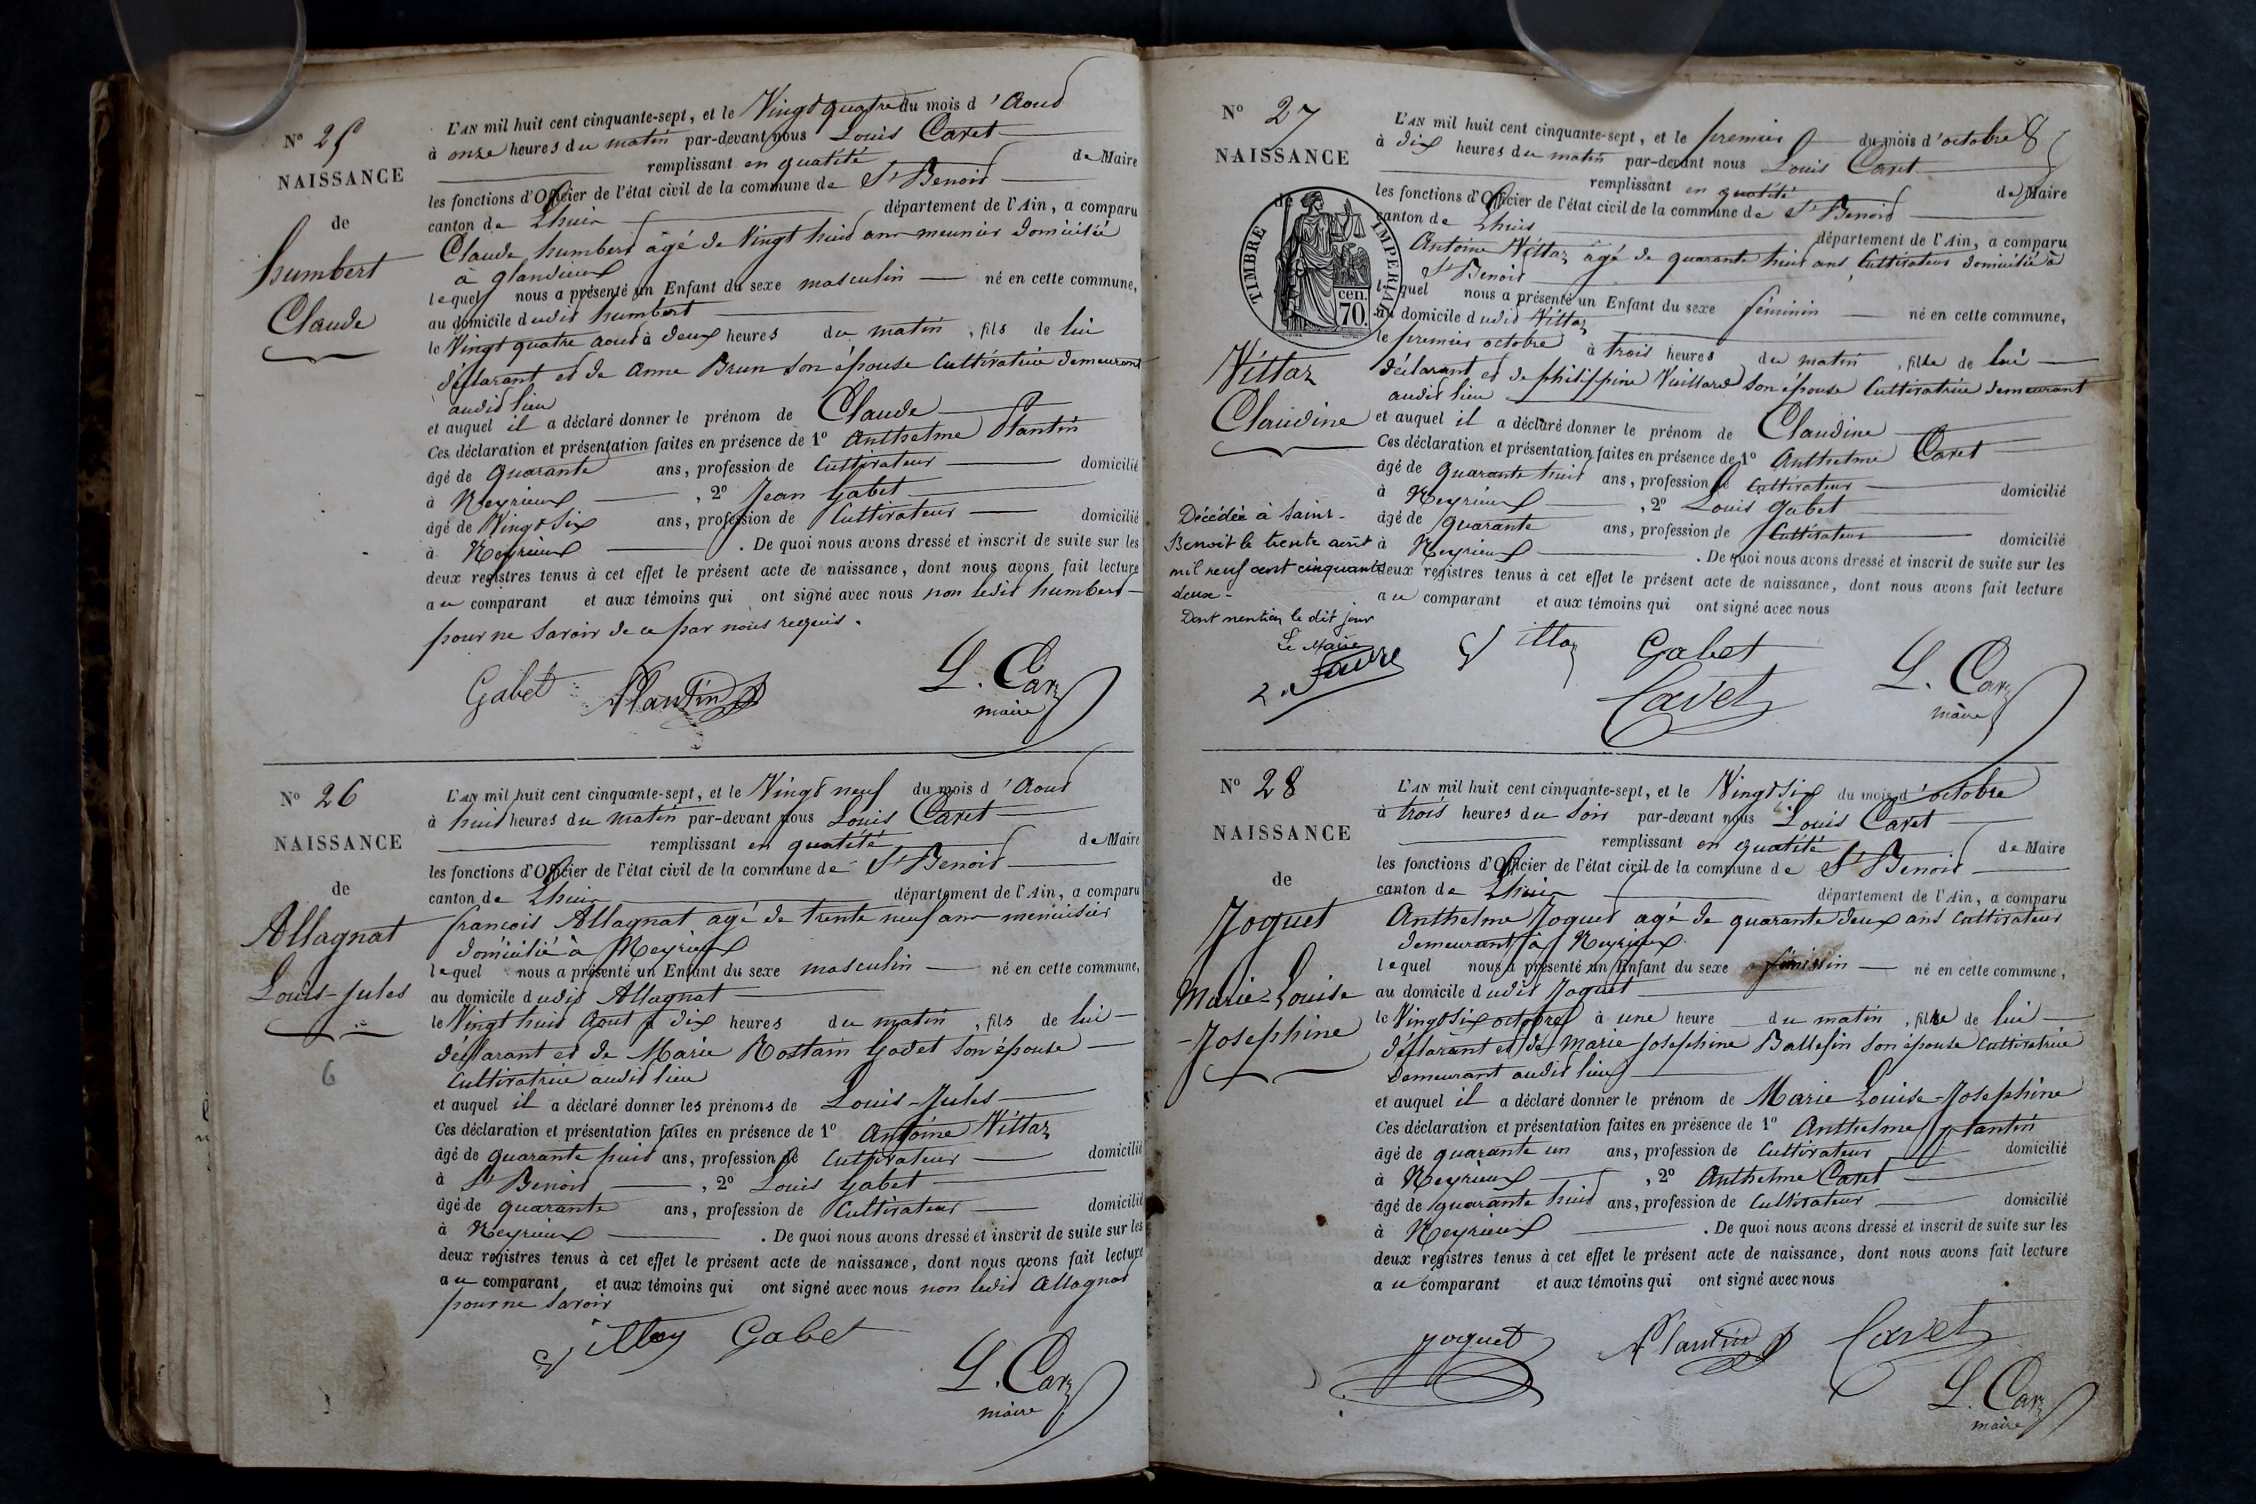 N° 25
NAISSANCE
de
humbert
Claude
L'AN mil huit cent cinquante-sept, et le Vingt quatre du mois d'Aoust
à onze heures du matin par-devant nous Louis Cavet
remplissant en qualité de Maire
les fonctions d'Officier de l'état civil de la commune de St Benoit
canton de Lhuis département de l'Ain, a comparu
Claude humbert âgé de Vingt huit ans meunier domicilié
à glandieux
lequel nous a présenté un Enfant du sexe masculin né en cette commune,
au domicile dudit humbert
le Vingt quatre aout à deux heures du matin, fils de lui
déclarant et de Anne Brun son épouse Cultivatrice demeurant
audit lieu
et auquel il a déclaré donner le prénom de Claude
Ces déclaration et présentation faites en présence de 1° Anthelme Plantin
âgé de quarante ans, profession de Cultivateur domicilié
à Neyrieux, 2° Jean Gabet
âgé de Vingt Six ans, profession de Cultivateur domicilié
à Neyrieux. De quoi nous avons dressé et inscrit de suite sur les
deux registres tenus à cet effet le présent acte de naissance, dont nous avons fait lecture
au comparant et aux témoins qui ont signé avec nous non ledit humbert
pour ne savoir de ce par nous requis.
Gabet Plantin L. Cavet
maire
N° 26
NAISSANCE
de
Allagnat
Louis-Jules
6
L'AN mil huit cent cinquante-sept, et le Vingt neuf du mois d'Aoust
à huit heures du matin par-devant nous Louis Cavet
remplissant en qualité de Maire
les fonctions d'Officier de l'état civil de la commune de St Benoit
canton de Lhuis département de l'Ain, a comparu
françois Allagnat agé de trente neuf ans menuisier
domicilié à Neyrieux
lequel nous a présenté un Enfant du sexe masculin né en cette commune,
au domicile dudit Allagnat
le Vingt huit Aout à dix heures du matin, fils de lui
déclarant et de Marie Rostain Godet son épouse
Cultivatrice audit lieu
et auquel il a déclaré donner les prénoms de Louis-Jules
Ces déclaration et présentation faites en présence de 1° Antoine Vittoz
âgé de quarante huit ans, profession de Cultivateur domicilié
à St Benoit, 2° Louis Gabet
âgé de quarante ans, profession de Cultivateur domicilié
à Neyrieux. De quoi nous avons dressé et inscrit de suite sur les
deux registres tenus à cet effet le présent acte de naissance, dont nous avons fait lecture
au comparant et aux témoins qui ont signé avec nous non ledit Allagnat
pour ne savoir
Vittoz Gabet L. Cavet
maire
N° 27
NAISSANCE
de
TIMBRE IMPERIAL
cen.
70.
Vittoz
Claudine
Décédée à Saint-
Benoit le trente août
mil neuf cent cinquante
deux -
Dont mention le dit jour
Le Maire
L. Favre
L'AN mil huit cent cinquante-sept, et le premier du mois d'octobre
à dix heures du matin par-devant nous Louis Cavet
remplissant en qualité de Maire
les fonctions d'Officier de l'état civil de la commune de St Benoit
canton de Lhuis département de l'Ain, a comparu
Antoine Vittoz âgé de quarante huit ans, Cultivateur domicilié à
St Benoit
lequel nous a présenté un Enfant du sexe féminin né en cette commune,
au domicile dudit Vittoz
le premier octobre à trois heures du matin, fille de lui
déclarant et de philippine Vuillard son épouse Cultivatrice demeurant
audit lieu
et auquel il a déclaré donner le prénom de Claudine
Ces déclaration et présentation faites en présence de 1° Anthelme Cavet
âgé de quarante huit ans, profession de Cultivateur domicilié
à Neyrieux, 2° Louis Gabet
âgé de quarante ans, profession de Cultivateur domicilié
à Neyrieux. De quoi nous avons dressé et inscrit de suite sur les
deux registres tenus à cet effet le présent acte de naissance, dont nous avons fait lecture
au comparant et aux témoins qui ont signé avec nous
Vittoz Gabet
Cavet L. Cavet
maire
N° 28
NAISSANCE
de
Joguet
Marie-Louise
-Josephine
L'AN mil huit cent cinquante-sept, et le Vingt Six du mois d'octobre
à trois heures du soir par-devant nous Louis Cavet
remplissant en qualité de Maire
les fonctions d'Officier de l'état civil de la commune de St Benoit
canton de Lhuis département de l'Ain, a comparu
Anthelme Joguet agé de quarante deux ans Cultivateur
demeurant à Neyrieux
lequel nous a présenté un Enfant du sexe féminin né en cette commune,
au domicile dudit Joguet
le Vingt Six octobre à une heure du matin, fille de lui
déclarant et de Marie Josephine Ballefin son épouse Cultivatrice
demeurant audit lieu
et auquel il a déclaré donner le prénom de Marie-Louise-Josephine
Ces déclaration et présentation faites en présence de 1° Anthelme plantin
âgé de quarante un ans, profession de Cultivateur domicilié
à Neyrieux, 2° Anthelme Cavet
âgé de quarante huit ans, profession de Cultivateur domicilié
à Neyrieux. De quoi nous avons dressé et inscrit de suite sur les
deux registres tenus à cet effet le présent acte de naissance, dont nous avons fait lecture
au comparant et aux témoins qui ont signé avec nous
Joguet Plantin Cavet
L. Cavet
maire